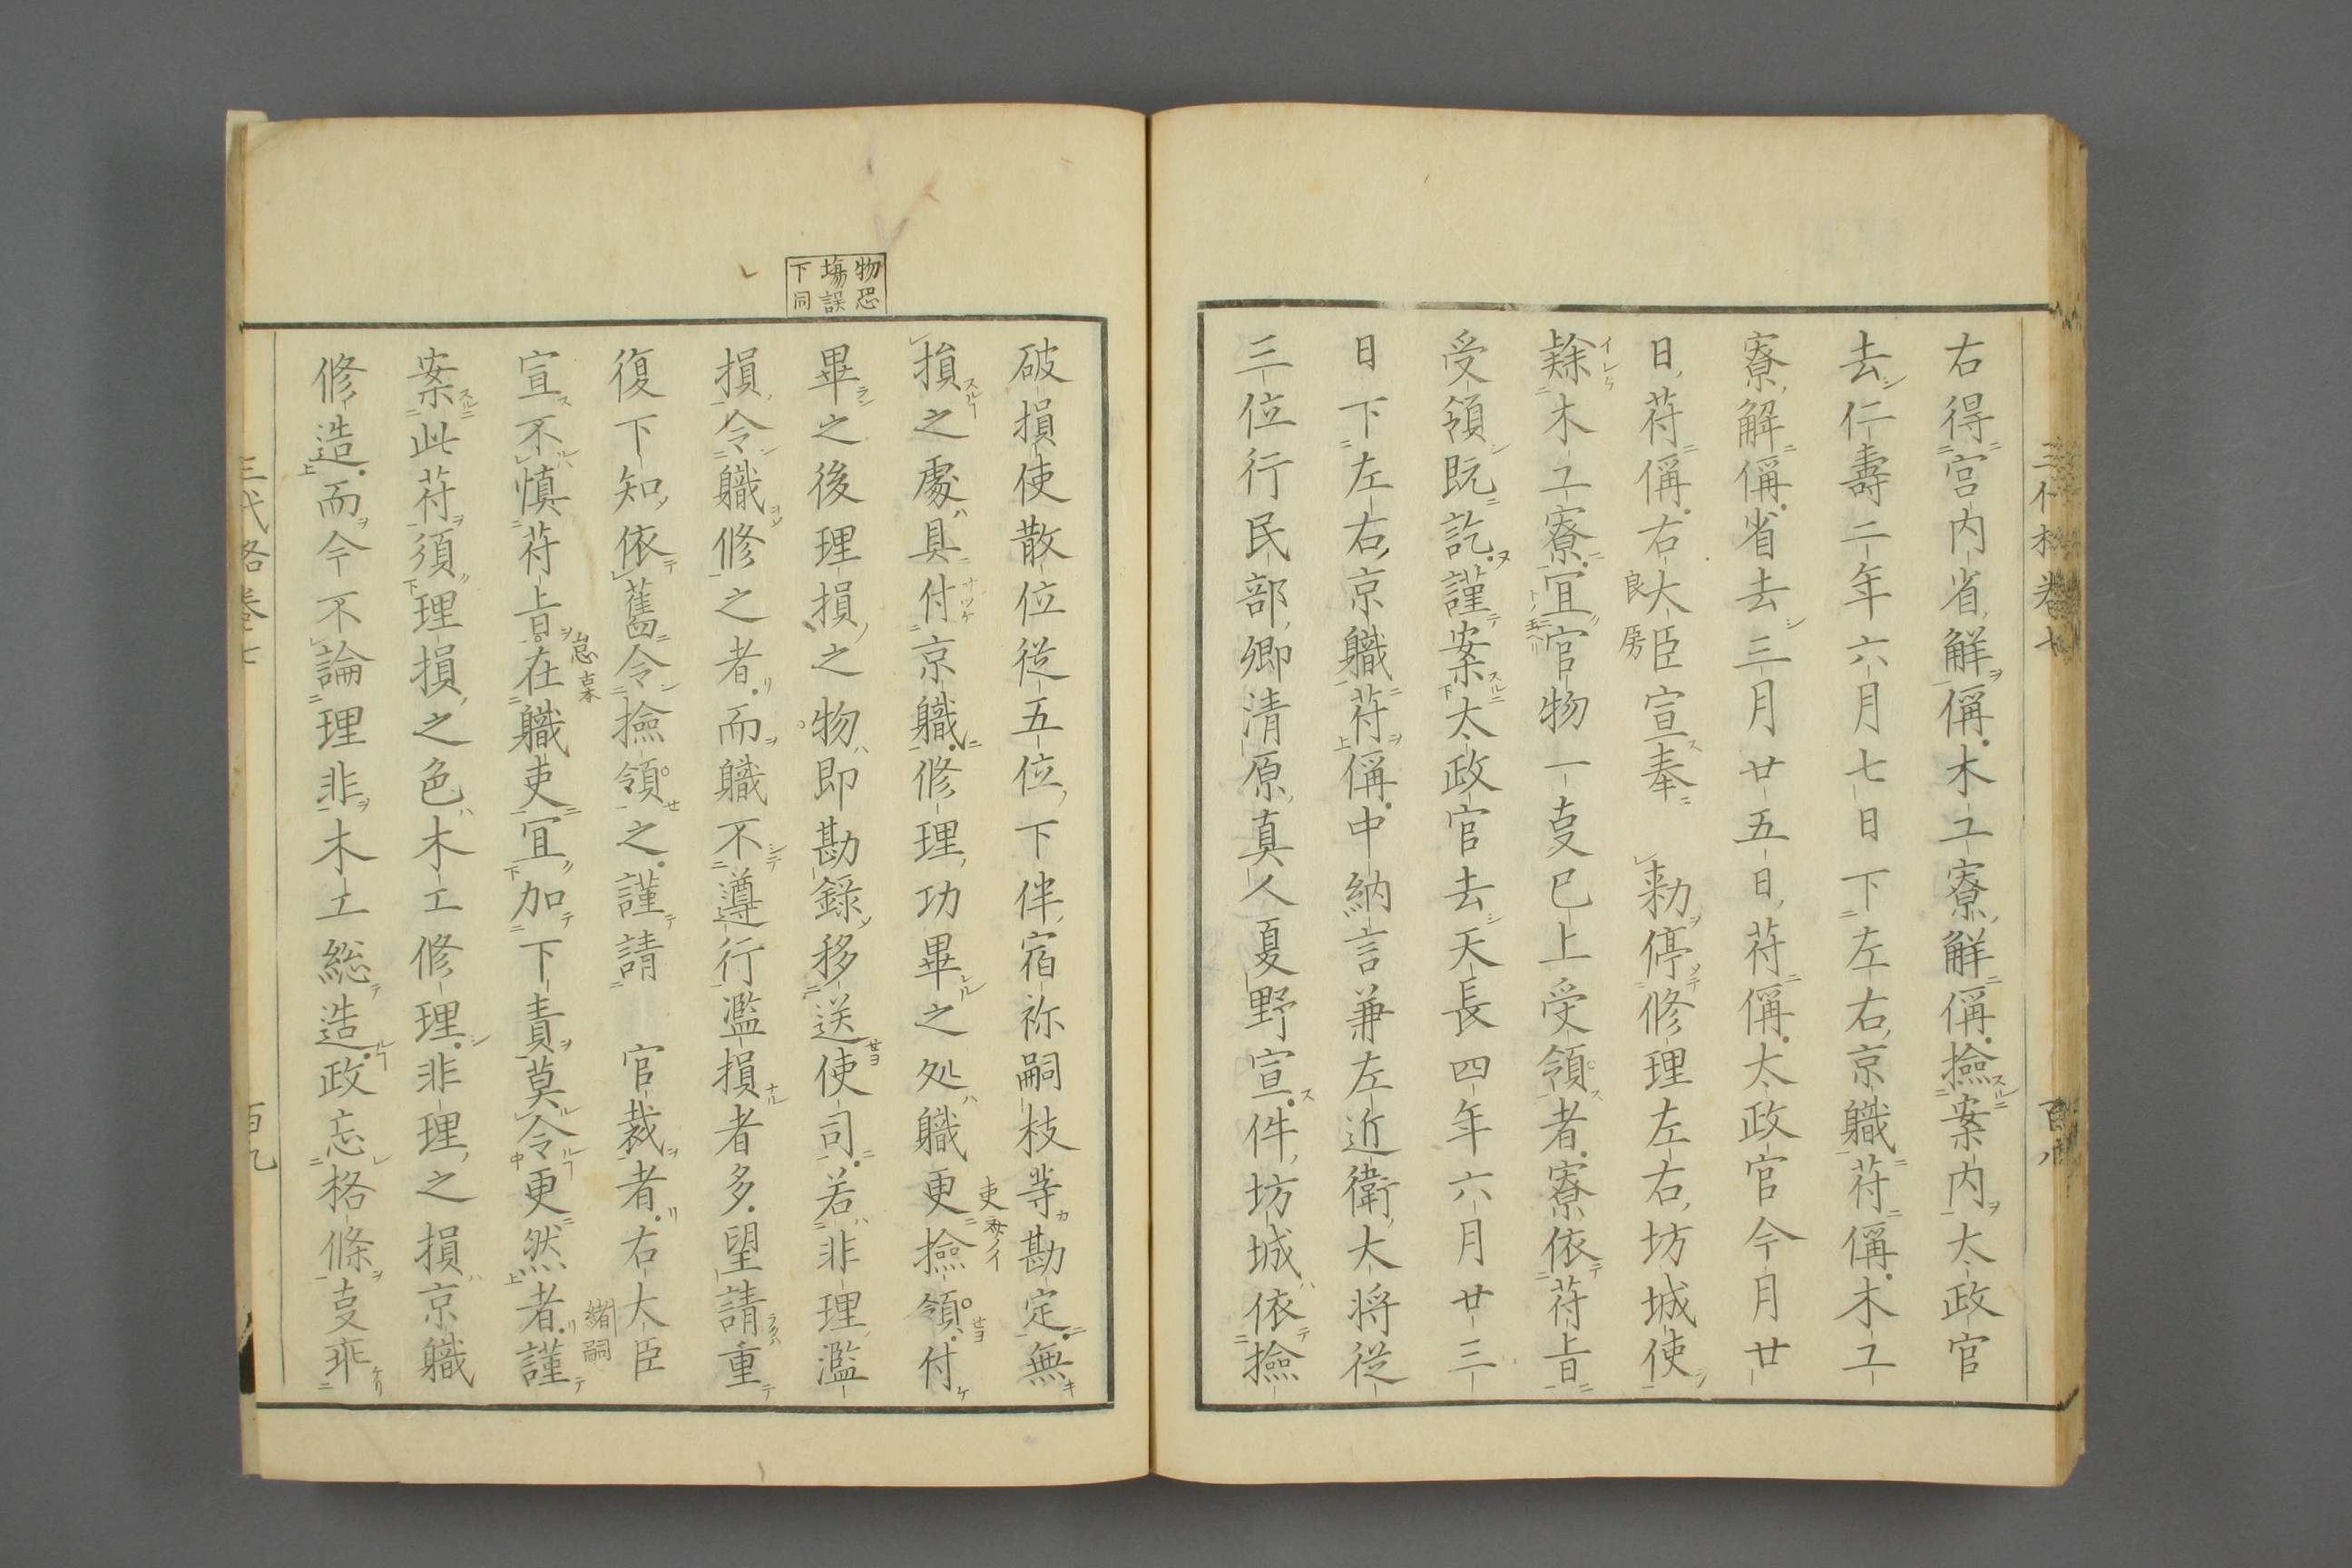 右得宮内省解偁木工寮解偁撿案内太政官
去仁壽二年六月七日下左右京職符偁木工
寮解偁省去三月廿五日符偁太政官今月廿
日符偁右大臣宣奉　勅停修理左右坊城使
良房
隷木工寮宜官物一事已上受領者寮依符旨
受領既訖謹案太政官去天長四年六月廿三
日下左右京職符偁中納言兼左近衛大将従
三位行民部卿清原真人夏野宣件坊城依撿
物恐
場誤
下同
破損使散位従五位下伴宿祢嗣枝等勘定無
損之處具付京職修理功畢之処職更撿領付
畢之後理損之物即勘錄移送使司若非理濫
損令職修之者而職不遵行濫損者多望請重
復下知依舊令撿領之謹請　官裁者右大臣
緒嗣
宣不慎符旨在職吏宜加下責莫令更然者謹
怠古本
案此符須理損之色木工修理非理之損京職
修造而今不論理非木工総造政忘格條事乖
三代格卷七